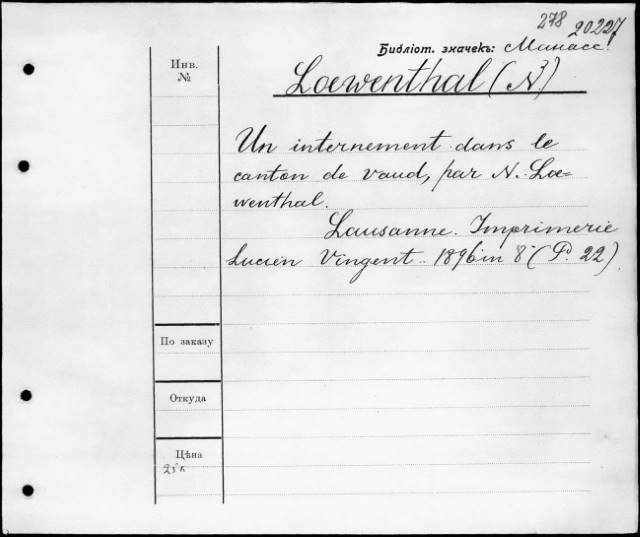 278 20227
Библіот. значекъ: Манасе.
Инв.
№
Loewenthal (N.)
Un internement dans le
canton de Vaud, par N. Loe=
wenthal.
Lausanne. Imprimerie
Lucien Vingent.. 1896 in 8° (P. 22)
По заказу
Откуда
Цѣна
25к